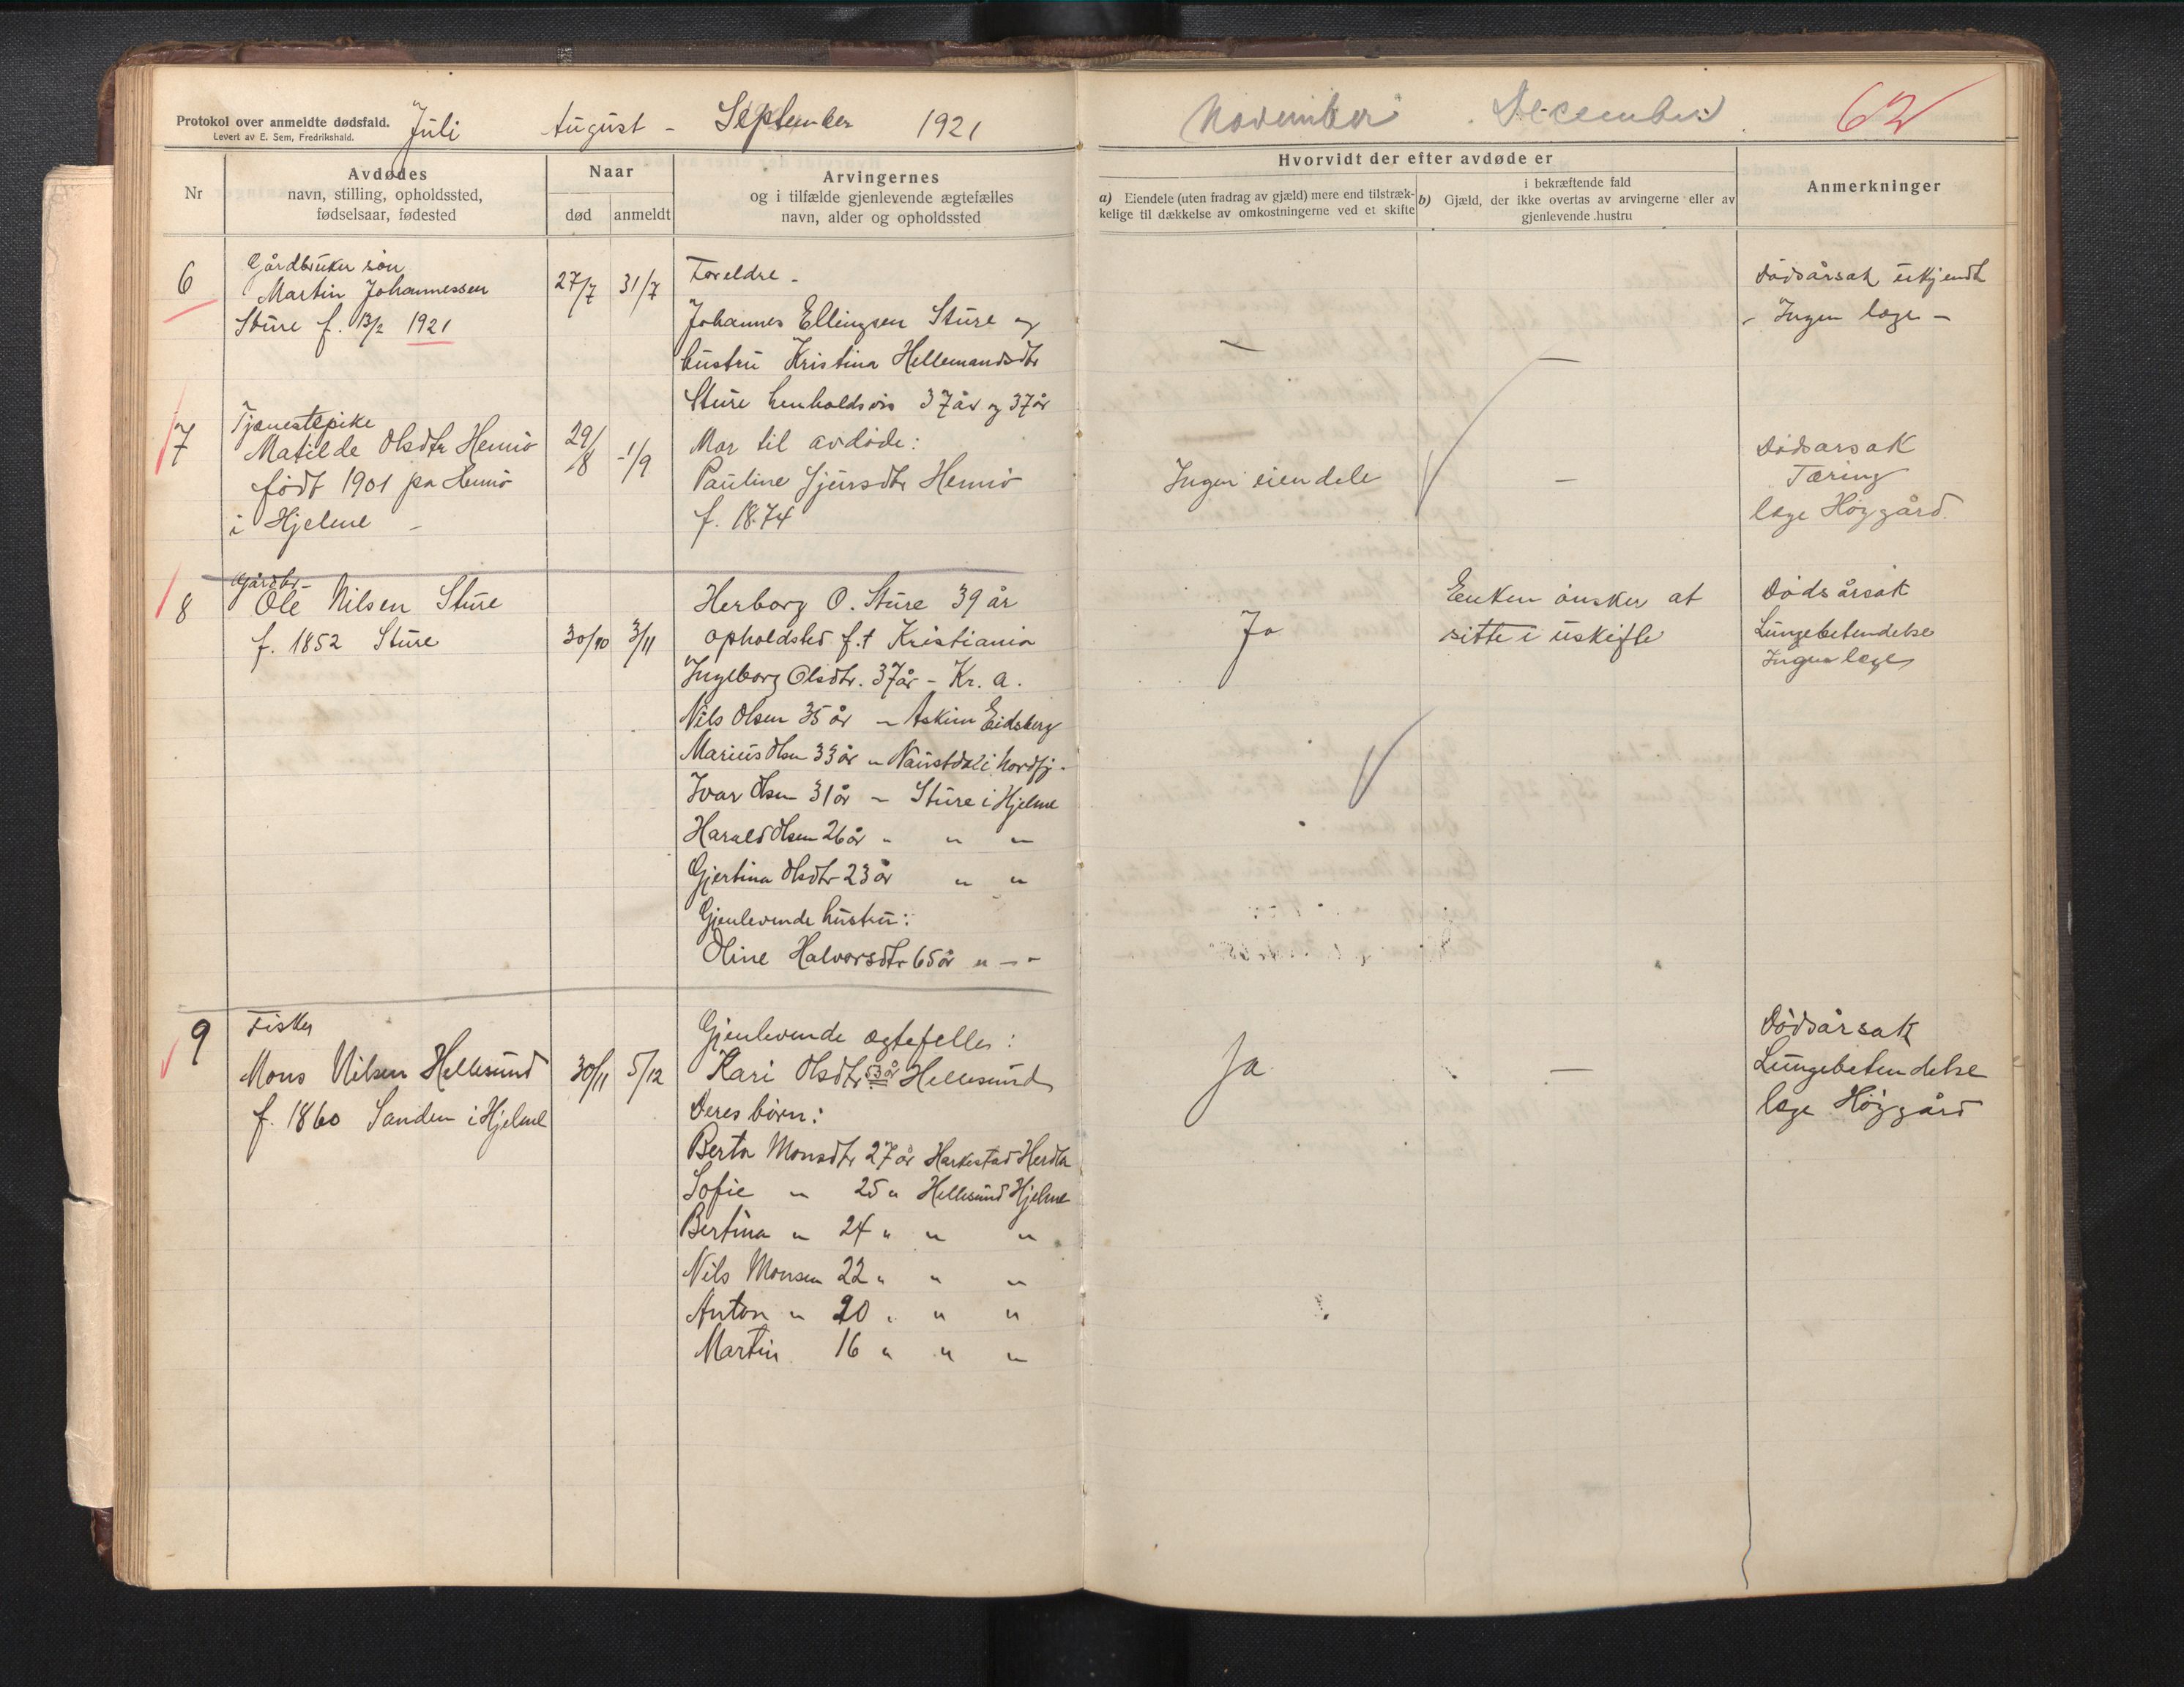 Protokol over anmeldte dødsfald.
Levert av E. Sem, Fredrikshald.
Juli August - September 1921
November . December. 62
Nr
Avdødes
navn, stilling, opholdssted,
fødselsaar, fødested
Naar
død anmeldt
Arvingernes
og i tilfælde gjenlevende ægtefælles
navn, alder og opholdssted
Hvorvidt der efter avdøde er
a) Eiendele (uten fradrag av gjæld) mere end tilstræk-
kelige til dækkelse av omkostningerne ved et skifte
i bekræftende fald
b) Gjæld, der ikke overtas av arvingerne eller av
gjenlevende hustru
Anmerkninger
6
Gårdbruker søn
Martin Johannessen
Sture f. 13/2 1921
27/7 31/7
Foreldre -
Johannes Ellingsen Sture og
hustru Kristina Hellemandsdtr
Sture henholdsvis 37 år og 37 år
— —
Dødsårsak ukjendt
- Ingen læge -
7
Tjænestepike
Matilde Olsdtr Hernø
født 1901 på Hernø
i Hjelme -
29/8 1/9
Mor til avdøde:
Pauline Sjursdtr Hernø
f. 1874
Ingen eiendele
—
Dødsarsak
Tæring
læge Höygård
8
Gårdbr-
Ole Nilsen Sture
f. 1852 Sture
30/10 3/11
Herborg O. Sture 39 år
opholdsted f.t Kristiania
Ingeborg Olsdtr. 37 år - Kr. a.
Nils Olsen 35 år - Askim Eidsberg
Marius Olsen 33 år " Naustdal i Nordfj-
Ivar Olsen 31 år - Sture i Hjelme
Harald Olsen 26 år " " "
Gjertina Olsdtr 23 år " "
Gjenlevende hustru:
Oline Halvorsdtr 65 år " - -
Ja
Enken ønsker at
sitte i uskifte
Dødsårsak
Lungebetendelse
Ingen læge
9
Fisker
Mons Nilsen Hellesund
f. 1860 Sanden i Hjelme
30/11 5/12
Gjenlevende ægtefelle:
Kari Olsdtr 53 år Hellesund
Deres børn:
Berta Monsdtr 27 år Harkestad Herdla
Sofie " 25 " Hellesund Hjelme
Bertina " 24 " " "
Nils Monsen 22 " " "
Anton " 20 " " "
Martin 16 " " "
Ja
—
Dødsårsak
Lungebetendelse
læge Höygård